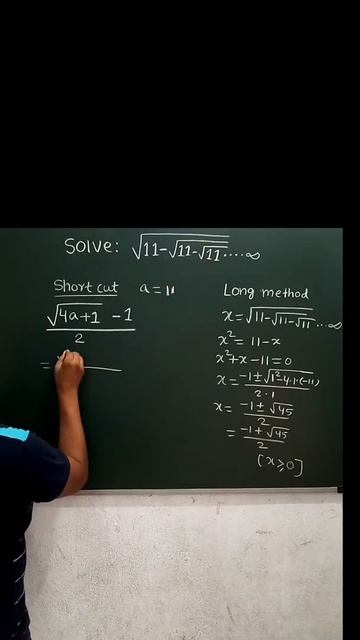 Solve: √(11-√(11-√11)) ....∞
Short cut a = 11
(√(4a+1) - 1)/2
=
Long method
x = √(11-√(11-√11)) ...∞
x² = 11-x
x²+x-11=0
x = (-1±√(1²-4.1.(-11)))/(2.1)
x = (-1±√45)/2
= (-1+√45)/2
[x≥0]